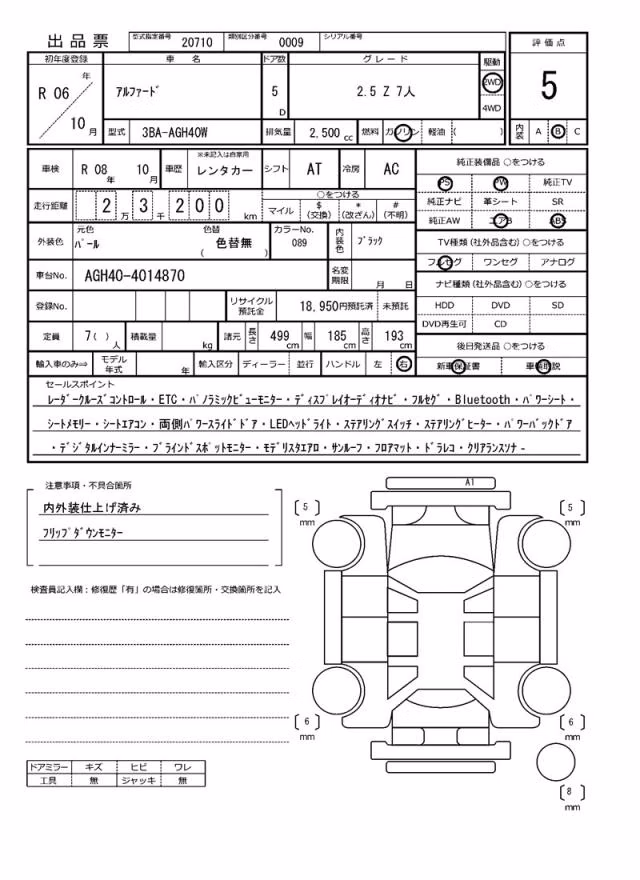 出品票 型式指定番号 20710 類別区分番号 0009 シリアル番号
初年度登録 車名 ドア数 グレード 駆動 評価点
R 06 年 10 月 アルファード 5 D 2.5 Z 7人 2WD 4WD 5
型式 3BA-AGH40W 排気量 2,500 cc 燃料 ガソリン 軽油 ( ) 内装 A B C
車検 R 08 年 10 月 車歴 ※未記入は自家用 レンタカー シフト AT 冷房 AC 純正装備品 ○をつける
PS PW 純正TV
走行距離 2 万 3 千 2 0 0 km ○をつける
マイル $ (交換) * (改ざん) # (不明)
純正ナビ 革シート SR
純正AW エアB ABS
外装色 元色 パール 色替 色替無 ( ) カラーNo. 089 内装色 ブラック
TV種類 (社外品含む) ○をつける
フルセグ ワンセグ アナログ
車台No. AGH40-4014870 名変期限 月 日
ナビ種類 (社外品含む) ○をつける
登録No. リサイクル預託金 18,950円預託済 未預託
HDD DVD SD
DVD再生可 CD
定員 7( ) 人 積載量 kg 諸元 長さ 499 cm 幅 185 cm 高さ 193 cm
後日発送品 ○をつける
輸入車のみ⇒ モデル年式 年 輸入区分 ディーラー 並行 ハンドル 左 右
新車保証書 車輌取説
セールスポイント
レーダークルーズコントロール・ETC・パノラミックビューモニター・ディスプレイオーディオナビ・フルセグ・Bluetooth・パワーシート・
シートメモリー・シートエアコン・両側パワースライドドア・LEDヘッドライト・ステアリングスイッチ・ステアリングヒーター・パワーバックドア
・デジタルインナーミラー・ブラインドスポットモニター・モデリスタエアロ・サンルーフ・フロアマット・ドラレコ・クリアランスソナ-
注意事項・不具合箇所
内外装仕上げ済み
フリップダウンモニター
検査員記入欄：修復歴「有」の場合は修復箇所・交換箇所を記入
A1
5 mm
5 mm
6 mm
6 mm
8 mm
ドアミラー キズ ヒビ ワレ
工具 無 ジャッキ 無